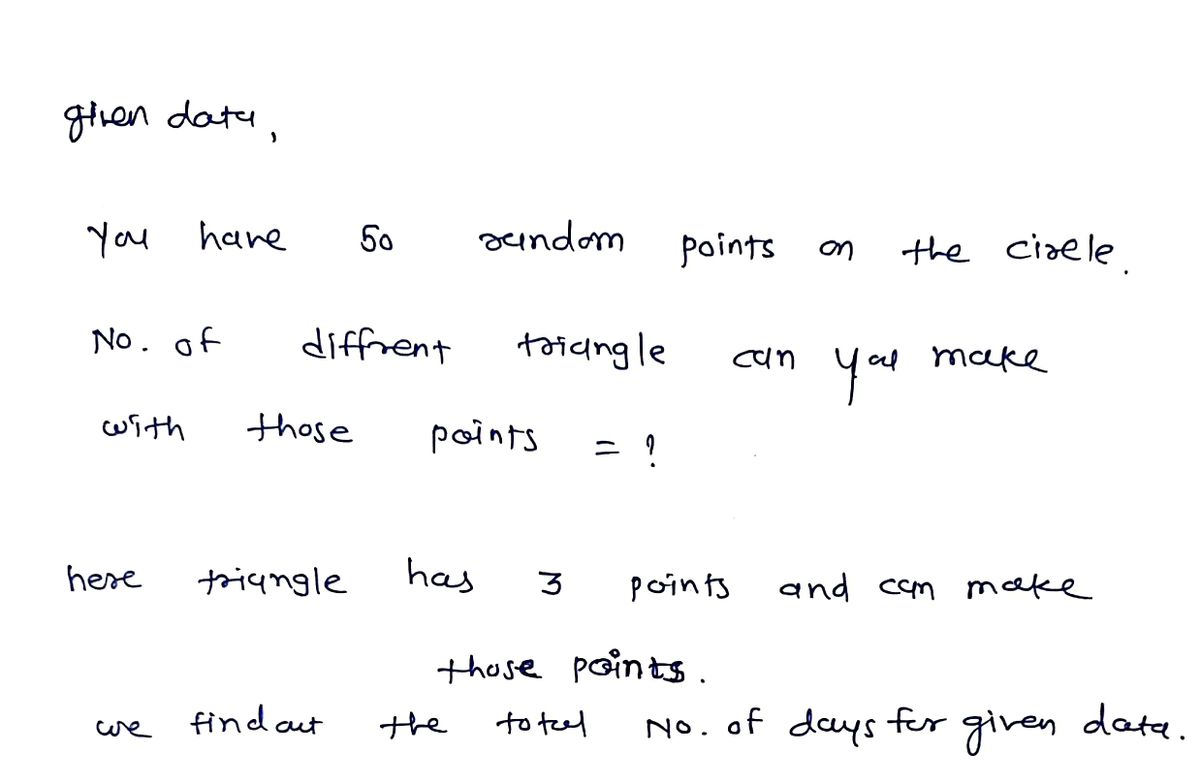 given data,
You have 50 random points on the circle.
No. of diffrent triangle can you make
with those points = ?
here triangle has 3 points and can make
those points.
we find out the total No. of days for given data.